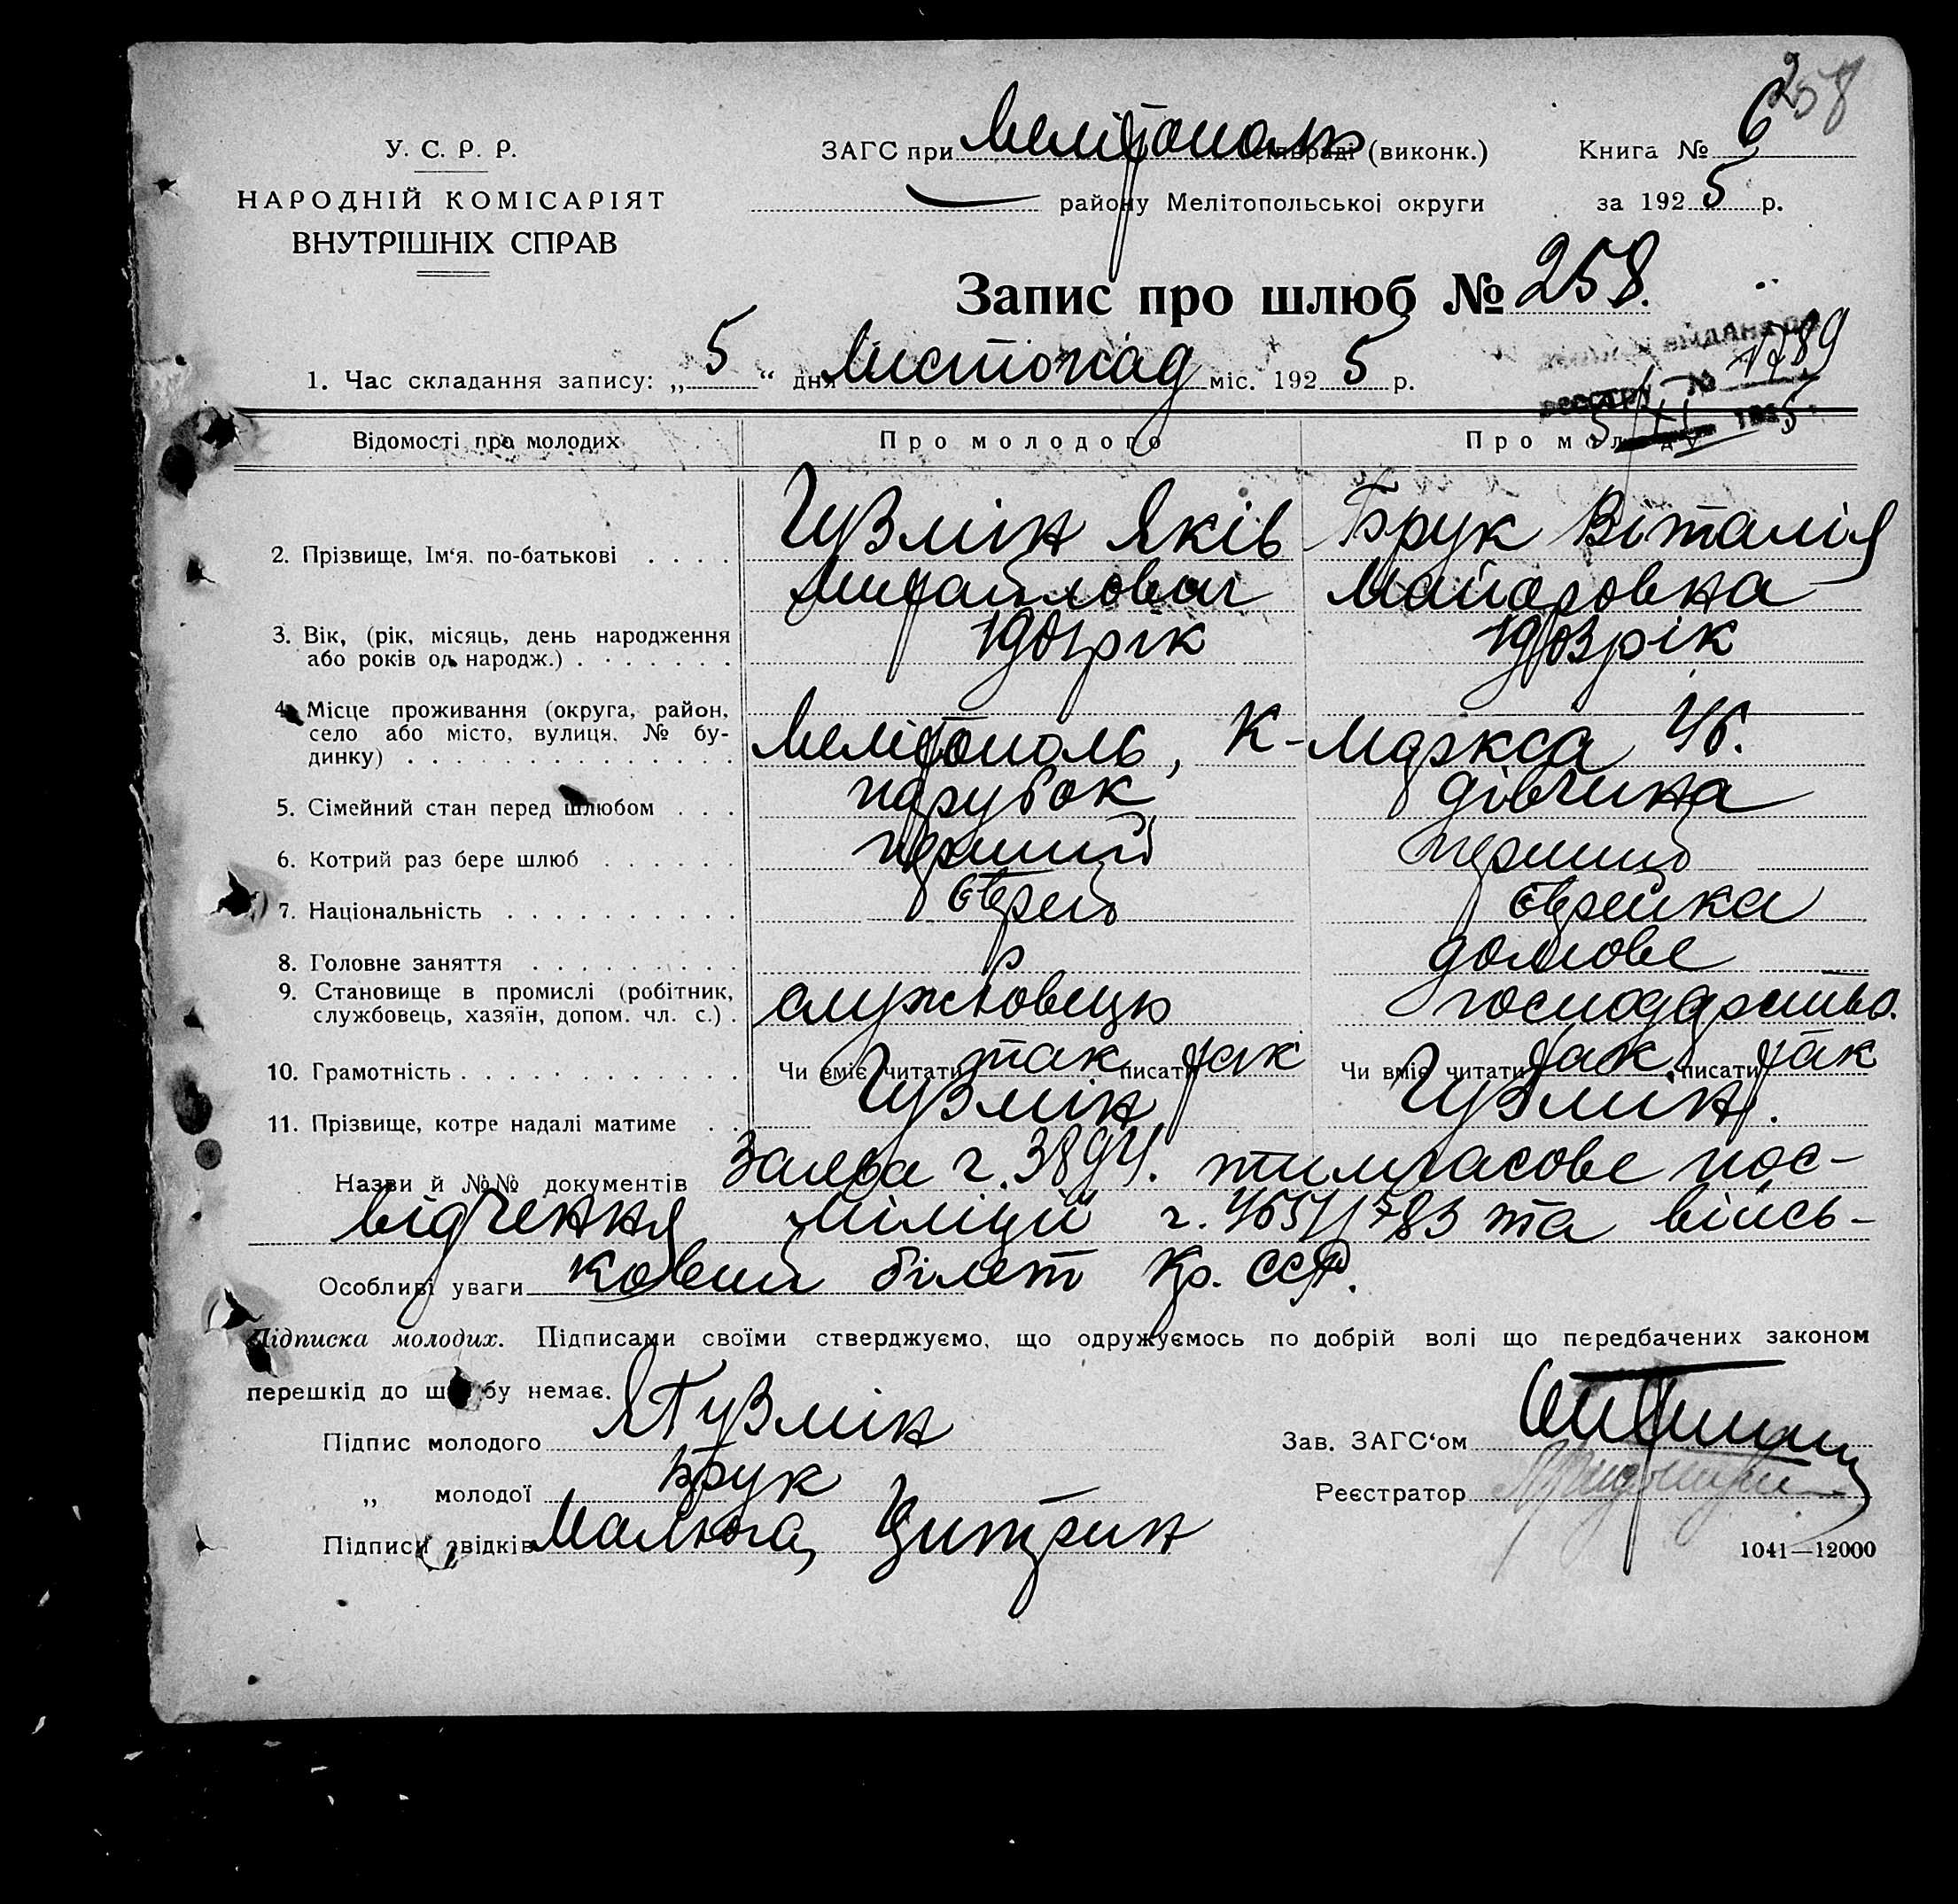 258
У. С. Р. Р.
НАРОДНІЙ КОМІСАРІЯТ
ВНУТРІШНІХ СПРАВ
ЗАГС при Мелітополь сільраді (виконк.)
району Мелітопольської округи
Книга № 6
за 1925 р.
Запис про шлюб № 258.
№ 1789
1. Час складання запису: „5“ дня Листопад міс. 1925 р.
Відомості про молодих Про молодого Про молоду
2. Прізвище, Ім'я, по-батькові . . . . Гузмін Яків Брук Віталія
Михайлович Майоровна
3. Вік, (рік, місяць, день народження
або років од народж.) . . . . . . . 1901 рік 1903 рік
4. Місце проживання (округа, район,
село або місто, вулиця, № бу-
динку) . . . . . . . . . . . . . . Мелітополь, К-Маркса 46.
5. Сімейний стан перед шлюбом . . . парубок дівчина
6. Котрий раз бере шлюб . . . . . . перший перший
7. Національність . . . . . . . . . . єврей єврейка
8. Головне заняття . . . . . . . . . домове
9. Становище в промислі (робітник,
службовець, хазяїн, допом. чл. с.) . службовець господарство.
10. Грамотність . . . . . . . . . . . . Чи вміє читати так писати так Чи вміє читати так писати так
11. Прізвище, котре надалі матиме . . Гузмін Гузмін.
Назви й №№ документів Заява ч. 3894. тимчасове пос-
відчення міліції ч. /783 та війсь-
Особливі уваги ковий білет Кр.
Підписка молодих. Підписами своїми стверджуємо, що одружуємось по добрій волі що передбачених законом
перешкід до шлюбу немає.
Підпис молодого ЯГузмін
Зав. ЗАГС'ом
„ молодої Брук
Реєстратор
Підписи звідків Малюга, Цитрин
1041—12000